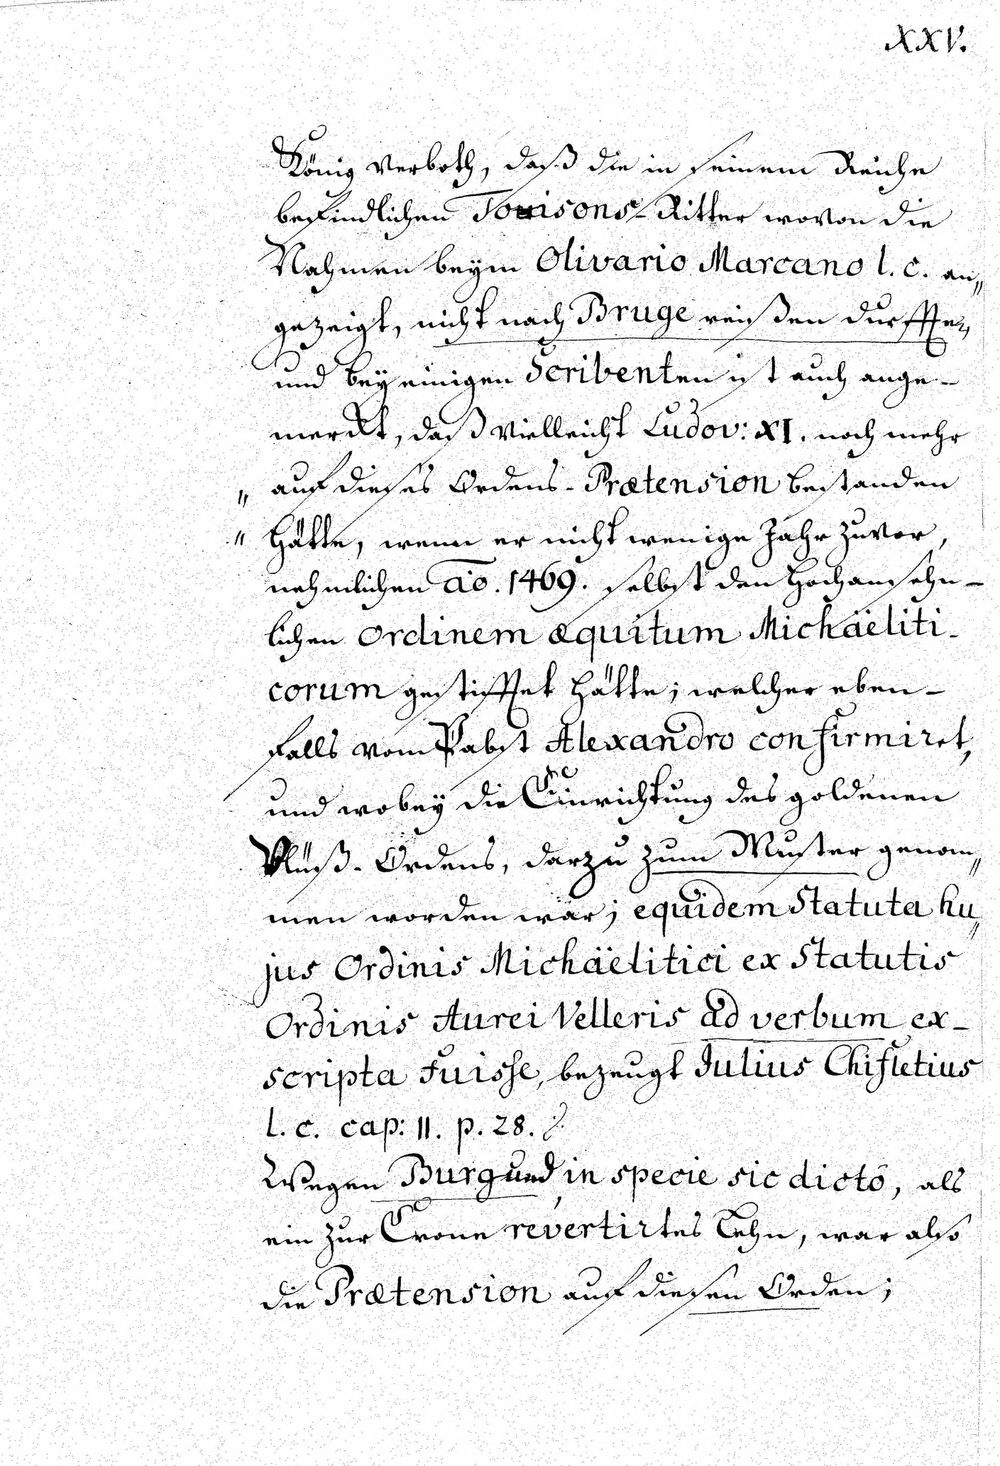 XXV.
König verboth, daß die in seinem Reiche
befindlichen Touisons-Ritter wovon die
Nahmen beym Olivario Marcano l. c. an„
gezeigt, nicht nach Bruge reißen durfften,
und bey einigen Scribenten ist auch ange-
merckt, daß vielleicht Ludov: XI. noch mehr
„ auf dieses Ordens-Prætension bestanden
„ hätte, wenn er nicht wenige Jahr zuvor,
nehmlichen ao. 1469. selbst den Hochansehn-
lichen Ordinem æquitum Michäeliti-
corum gestifftet hätte; welcher eben-
falls vom Pabst Alexandro confirmiret,
und wobey die Einrichtung des goldenen
Vließ-Ordens, darzu zum Muster genom„
men worden wär; equidem Statuta hu„
jus Ordinis Michäelitici ex Statutis
Ordinis Aurei Velleris ad verbum ex-
scripta fuisse, bezeugt Julius Chifletius
l. c. cap: 11. p. 28.
Wegen Burgund in specie sic dictô, als
ein zur Crone revertirtes Lehn, war also
die Prætension auf diesen Orden;